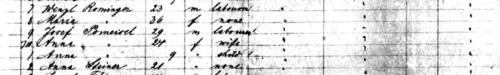 7 Wenzl Rominger 23 m labourer
8 Marie " 36 f none
9 Josef Pomeisel 29 m labourer
70 Anna " 24 f wife
1 Anna " 9 " child
2 Anna Steiner 21 " none